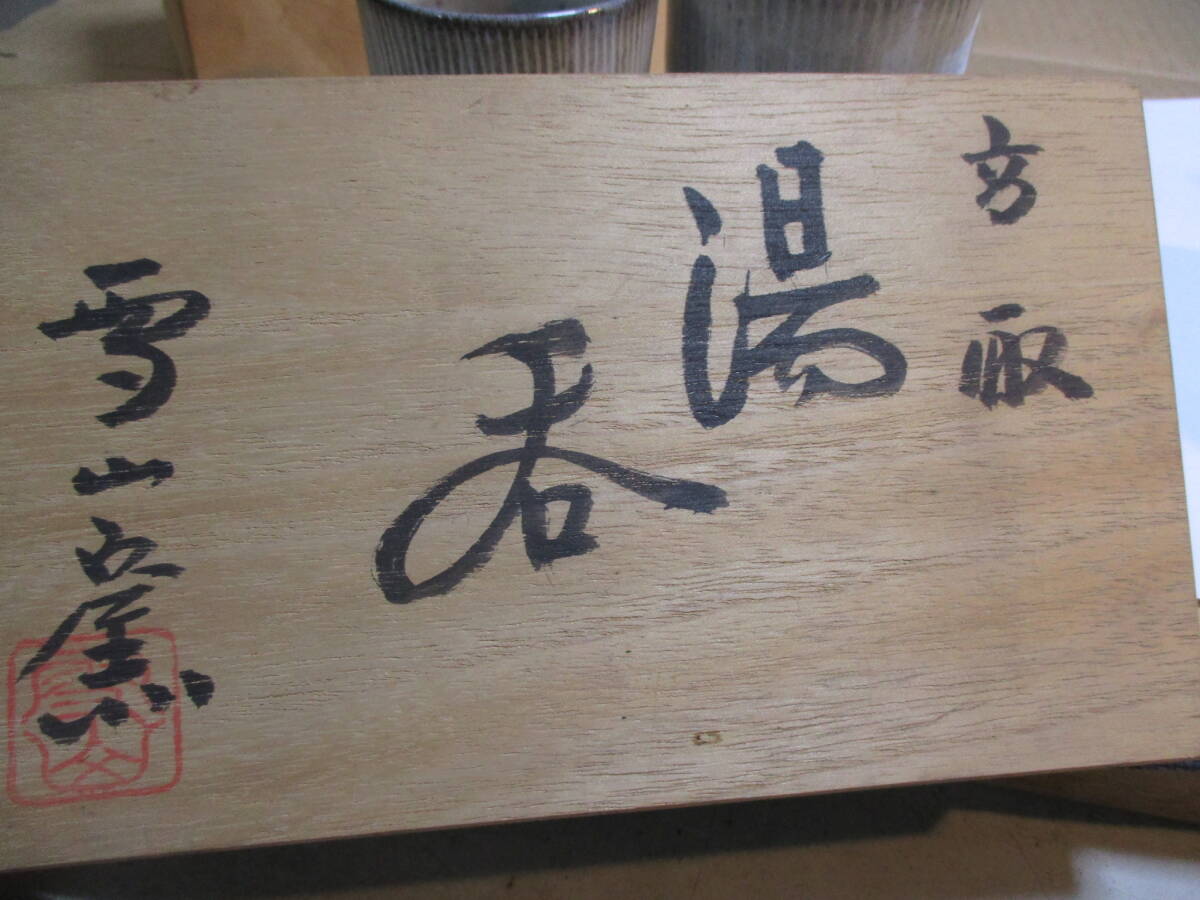 高取
湯呑
雪山窯